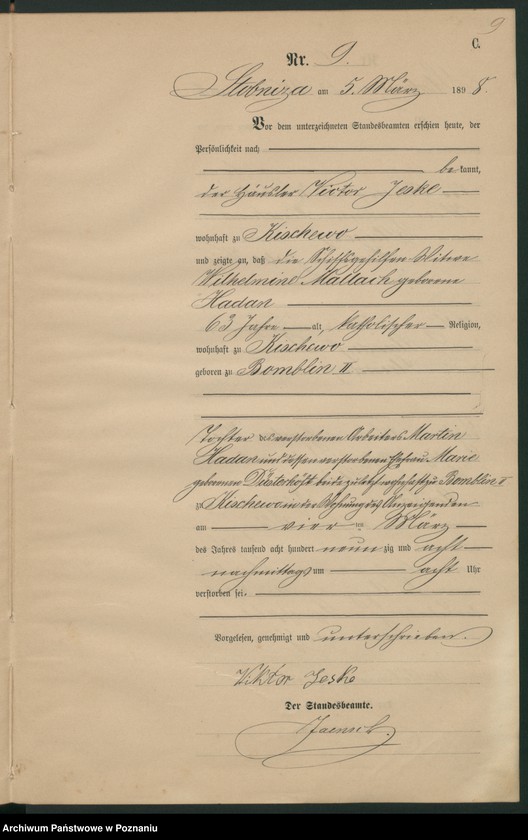 9
C.
Nr. 9.
Stobniza am 5. März 1898.
Vor dem unterzeichneten Standesbeamten erschien heute, der
Persönlichkeit nach
be kannt,
der Häusler Victor Jeske
wohnhaft zu Kischewo
und zeigte an, daß die Schiffsgehilfen Witwe
Wilhelmine Mallach geborene
Hadan
63 Jahre alt, katholischer Religion,
wohnhaft zu Kischewo
geboren zu Bomblin II
Tochter des verstorbenen Arbeiters Martin
Hadan und dessen verstorbenen Ehefrau Marie
geborenen Düsterhöft beide zuletzt wohnhaft zu Bomblin II
zu Kischewo in der Wohnung des Anzeigenden
am vier ten März
des Jahres tausend acht hundert neun zig und acht
nachmittags um acht Uhr
verstorben sei.
Vorgelesen, genehmigt und unterschrieben.
Viktor Jeske
Der Standesbeamte.
Jaensch
Archiwum Państwowe w Poznaniu